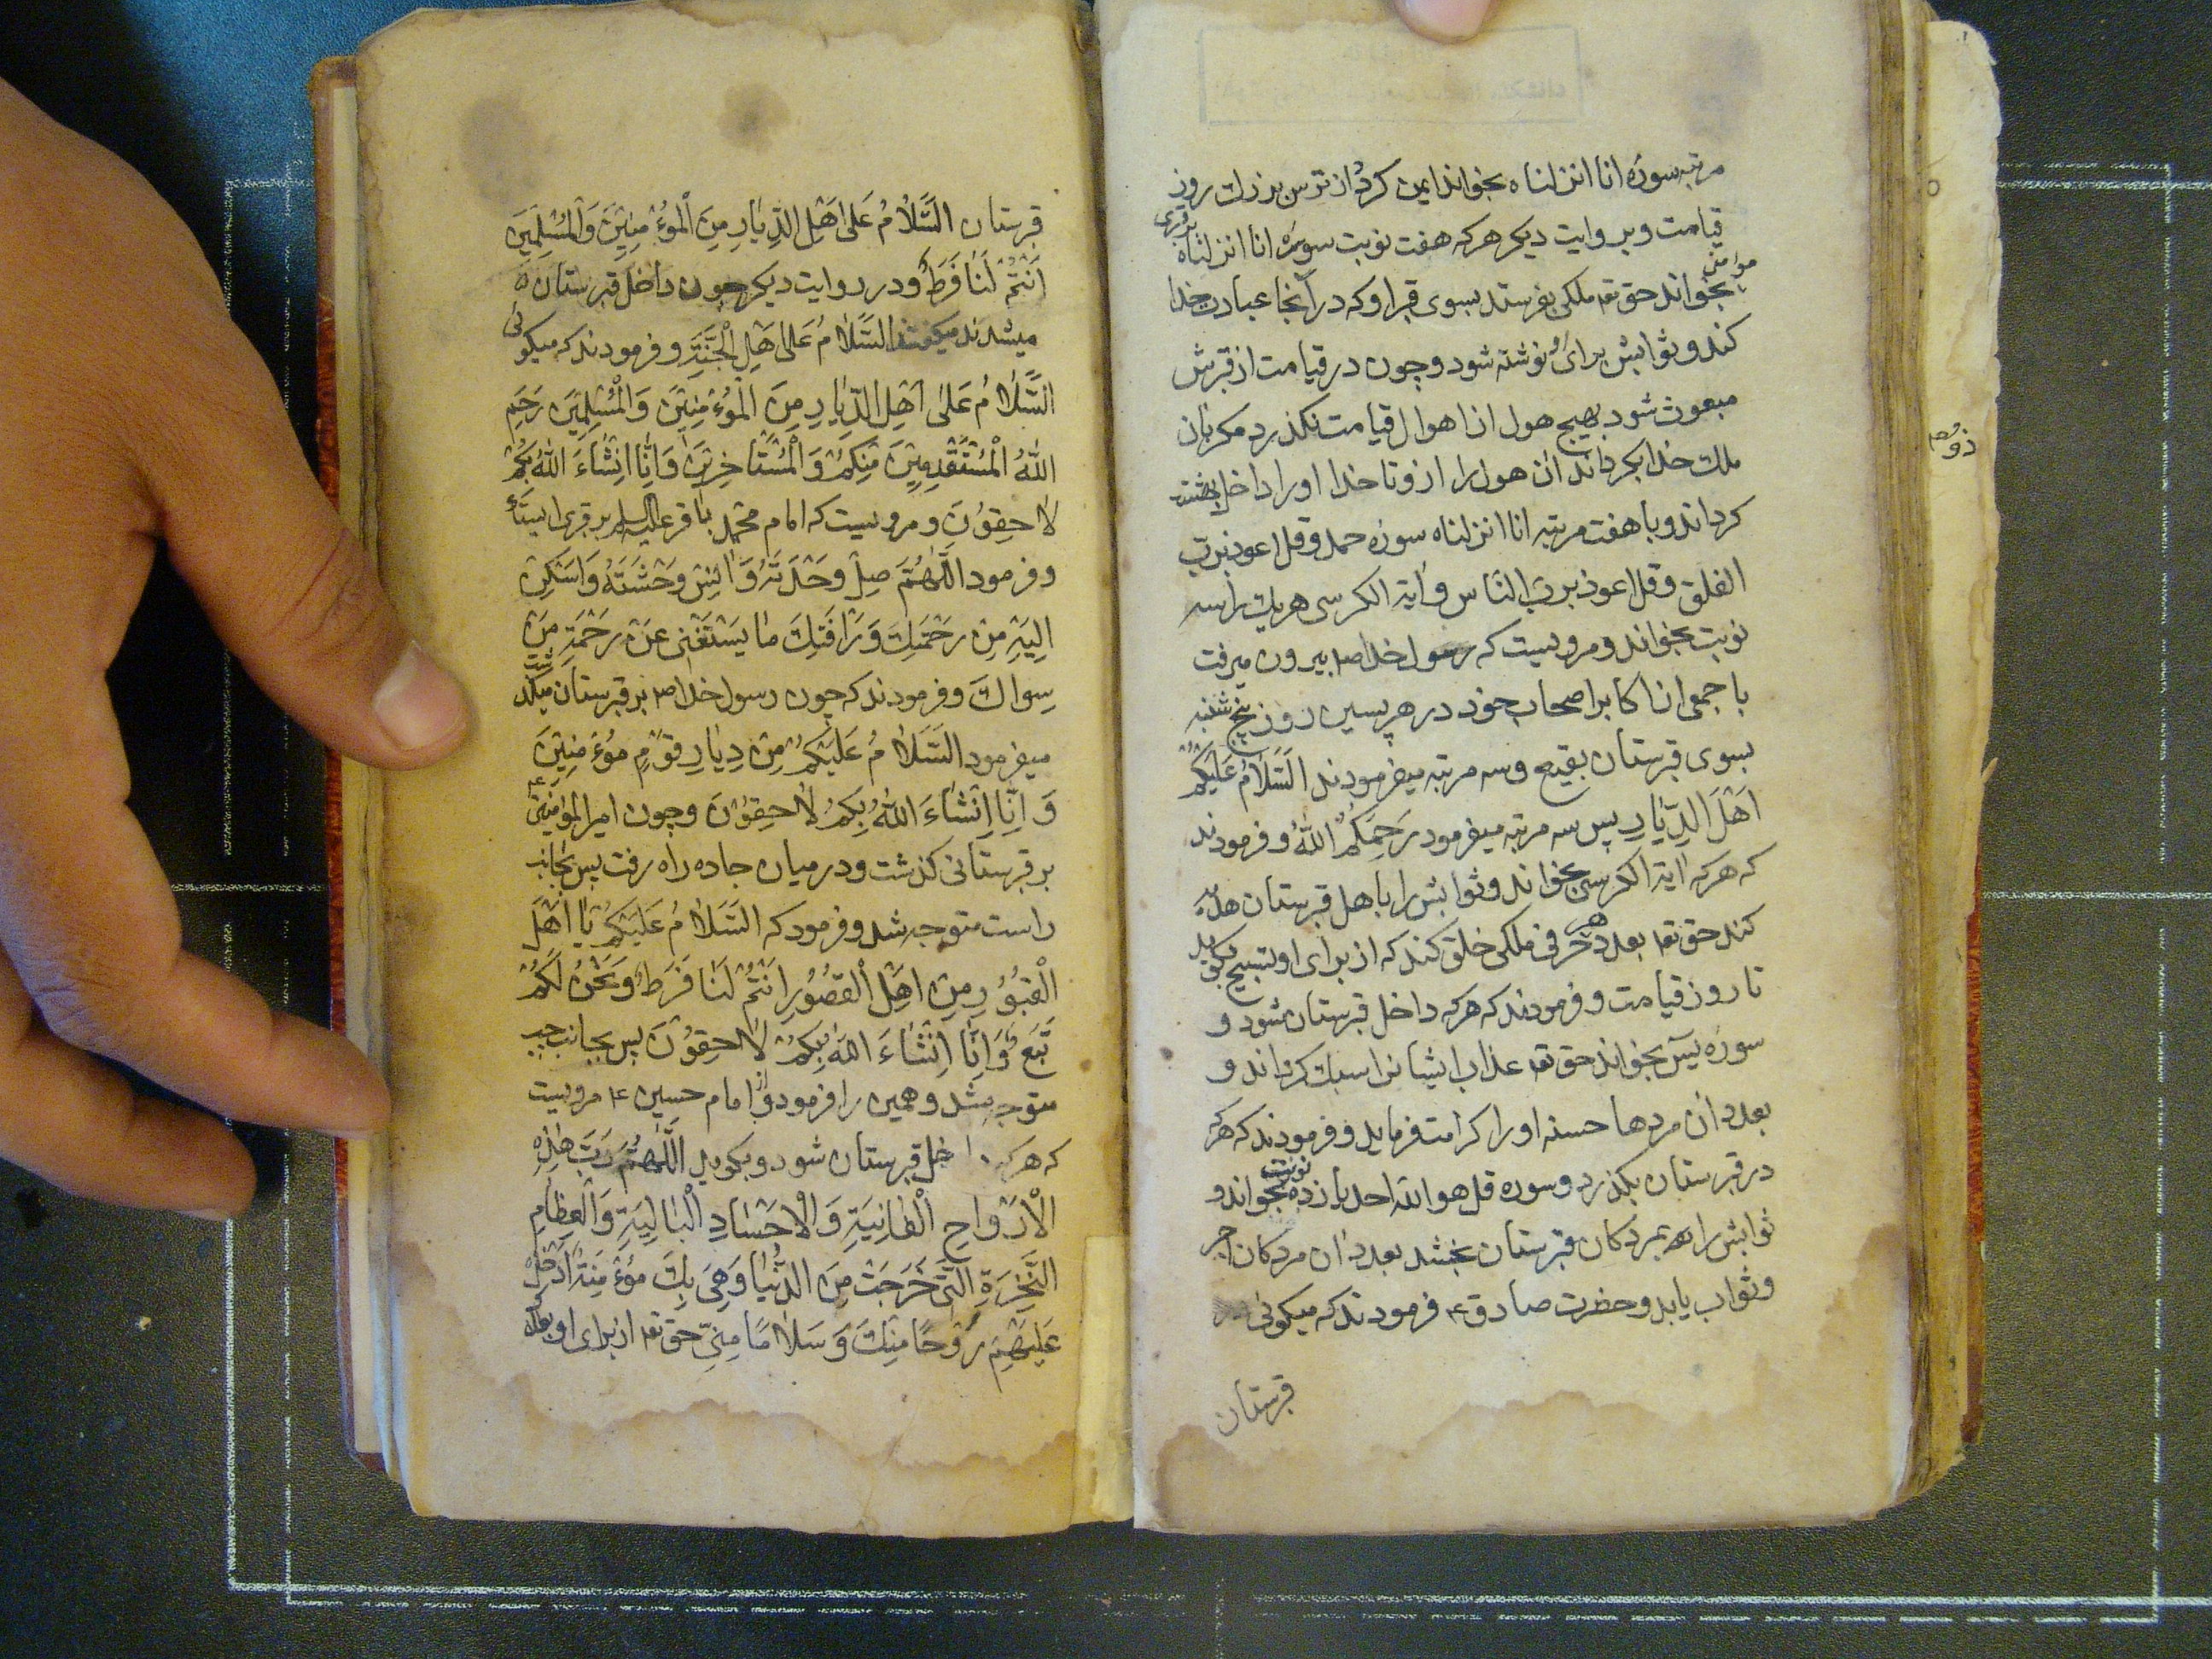 مرتبه سوره انا انزلناه بخواند ایمن کردد از ترس بزرك روز
قیامت و بروایت دیکر هرکه هفت نوبت سوره انا انزلناه بر قبری
مؤمن
بخواند حق تع ملکی بفرستد بسوی قبر او که در آنجا عبادت خدا
کند و ثوابش برای او نوشته شود و چون در قیامت از قبرش
مبعوث شود بهیچ هول از اهوال قیامت نکذرد مکر بان
ملك خدا بکرداند ان هول را از و تا خدا او را داخل بهشت
کرداند و با هفت مرتبه انا انزلناه سوره حمد و قل اعوذ برب
الفلق و قل اعوذ برب الناس و ایة الکرسی هر یك را سه
نوبت بخواند و مرویست که رسول خدا ص بیرون میرفت
با جمعی از اکابر اصحاب خود در هر پسین روز پنجشنبه
بسوی قبرستان بقیع و سه مرتبه میفرمودند اَلسَّلَامُ عَلَیْکُمْ
اَهْلَ الدِّیٰارِ پس سه مرتبه میفرمود رَحِمَکُمُ اللّٰهُ و فرمودند
که هرکه ایة الکرسی بخواند و ثوابش را باهل قبرستان هدیه
کند حق تع بعدد هر حرفی ملکی خلق کند که از برای او تسبیح بکوید
تا روز قیامت و فرمودند که هرکه داخل قبرستان شود و
سوره یسۤ بخواند حق تع عذاب ایشانرا سبك کرداند و
بعدد ان مردها حسنه او را کرامت فرماید و فرمودند که هرکه
در قبرستان بکذرد و سوره قل هو الله احد یازده نوبت بخواند و
ثوابش را بمردکان قبرستان بخشد بعدد ان مردکان اجر
و ثواب یابد و حضرت صادق ع فرمودند که میکوئی در
قبرستان
قبرستان اَلسَّلٰامُ عَلیٰ اَهْلِ الدِّیٰارِ مِنَ الْمُؤْمِنِیْنَ وَالْمُسْلِمِیْنَ
اَنْتُمْ لَنٰا فَرَطٌ و در روایت دیکر چون داخل قبرستان
میشدند میکفتند اَلسَّلٰامُ عَلیٰ اَهْلِ الْجَنَّةِ و فرمودند که میکوئی
اَلسَّلٰامُ عَلیٰ اَهْلِ الدِّیٰارِ مِنَ الْمُؤْمِنِیْنَ وَالْمُسْلِمِیْنَ رَحِمَ
اللّٰهُ الْمُسْتَقْدِمِیْنَ مِنْکُمْ وَالْمُسْتَاْخِرِیْنَ وَاِنّٰا اِنْشٰاءَ اللّٰهُ بِکُمْ
لٰاحِقُوْنَ و مرویست که امام محمد باقر علیه السلم بر قبری ایستاد
و فرمود اَللّٰهُمَّ صِلْ وَحْدَتَهُ وَاٰنِسْ وَحْشَتَهُ وَاَسْکِنْ
اِلَیْهِ مِنْ رَحْمَتِكَ وَرَاْفَتِكَ مٰا یَسْتَغْنیٖ عَنْ رَحْمَةِ مَنْ
سِوٰاكَ و فرمودند که چون رسول خدا ص بر قبرستان میکذشت
میفرمود اَلسَّلٰامُ عَلَیْکُمْ مِنْ دِیٰارِ قَوْمٍ مُؤْمِنِیْنَ
وَ اِنّٰا اِنْشٰاءَ اللّٰهُ بِکُمْ لٰاحِقُوْنَ و چون امیر المؤمنین ع
بر قبرستانی کذشت و در میان جاده راه رفت پس بجانب
راست متوجه شد و فرمود که اَلسَّلٰامُ عَلَیْکُمْ یٰا اَهْلَ
الْقُبُوْرِ مِنْ اَهْلِ الْقُصُوْرِ اَنْتُمْ لَنٰا فَرَطٌ وَنَحْنُ لَکُمْ
تَبَعٌ وَاِنّٰا اِنْشٰاءَ اللّٰهُ بِکُمْ لٰاحِقُوْنَ پس بجانب چپ
متوجه شد و همین را فرمود و از امام حسین ع مرویست
که هرکه داخل قبرستان شود و بکوید اَللّٰهُمَّ رَبَّ هٰذِهِ
الْاَرْوٰاحِ الْفٰانِیَةِ وَالْاَجْسٰادِ الْبٰالِیَةِ وَالْعِظٰامِ
النَّخِرَةِ الَّتیٖ خَرَجَتْ مِنَ الدُّنْیٰا وَهِیَ بِكَ مُؤْمِنَةٌ اَدْخِلْ
عَلَیْهِمْ رَوْحًا مِنْكَ وَسَلٰامًا مِنّیٖ حق تع از برای او بعدد